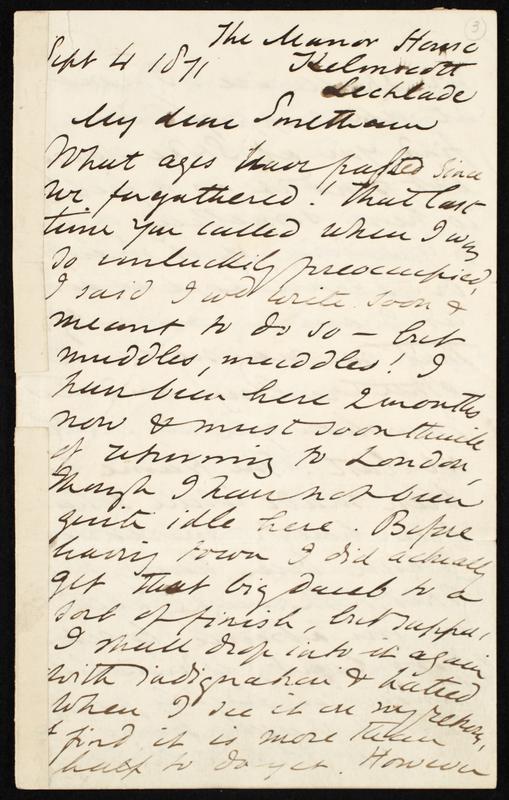 3
The Manor House
Sept 4 1871 Kelmscott
Lechlade
My dear Smetham
What ages have passed since
we forgathered! That last
time you called when I was
so unluckily preoccupied,
I said I wd write soon &
meant to do so – but
muddles, muddles! I
have been here 2 months
now & must soon think
of returning to London,
though I have not been
quite idle here. Before
leaving town I did actually
get that big Daub to a
sort of finish, but suppose
I shall drop into it again
with indignation & hatred
when I see it on my return,
& find it is more than
half to do yet. However